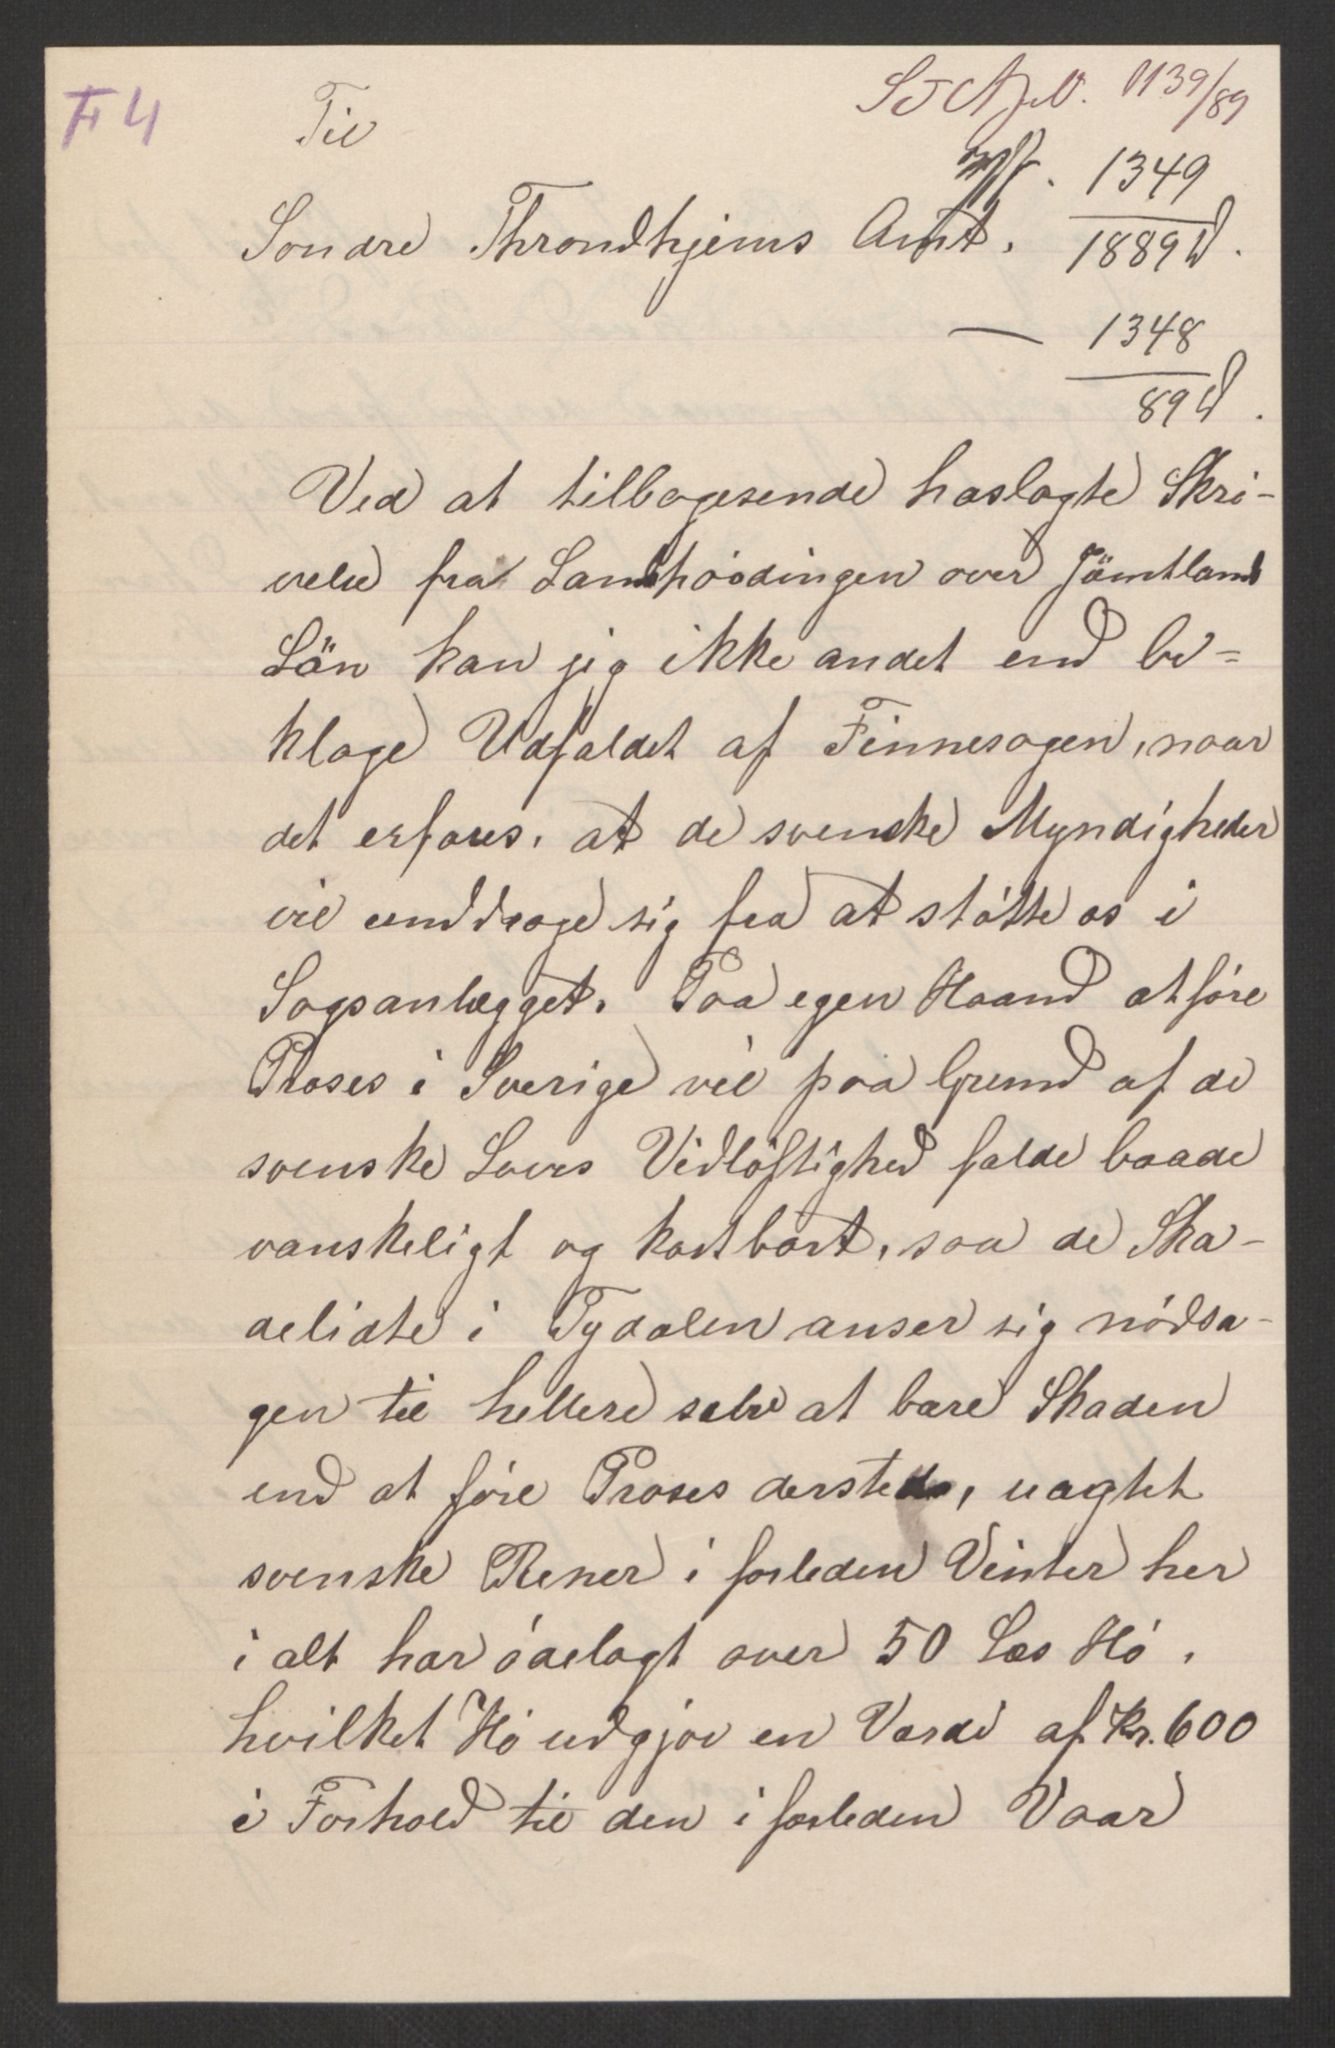 F 4
Til
1139/89
1349
Søndre Throndhjems Amt.
1889
— 1348
89
Ved at tilbagesende haslagte Skri-
velse fra Landshöidingen over Jämtlands
Län kan jeg ikke andet end be-
klage Udfaldet af Finnesagen, naar
det erfares, at de svenske Myndigheder
vil unddrage sig fra at støtte os i
Sagsanlægget. Paa egen Haand at føre
Proses i Sverige vil paa Grund af de
svenske Loves Vidløftighed falde baade
vanskeligt og kostbart, saa de Ska-
delidte i Tydalen anser sig nødsa-
gen til hellere selv at bære Skaden
end at føre Proses dersteds, uagtet
svenske Rener i forleden Vinter her
i alt har ødelagt over 50 Læs Hø,
hvilket Hø udgjør en Værdi af Kr. 600
i Forhold til den i forleden Vaar